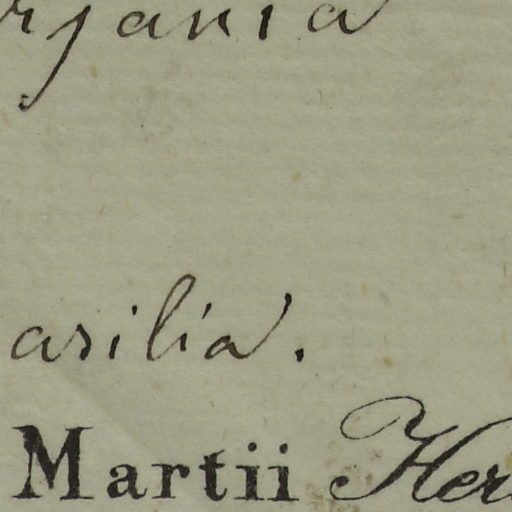 rjania
asilia.
Martii Her